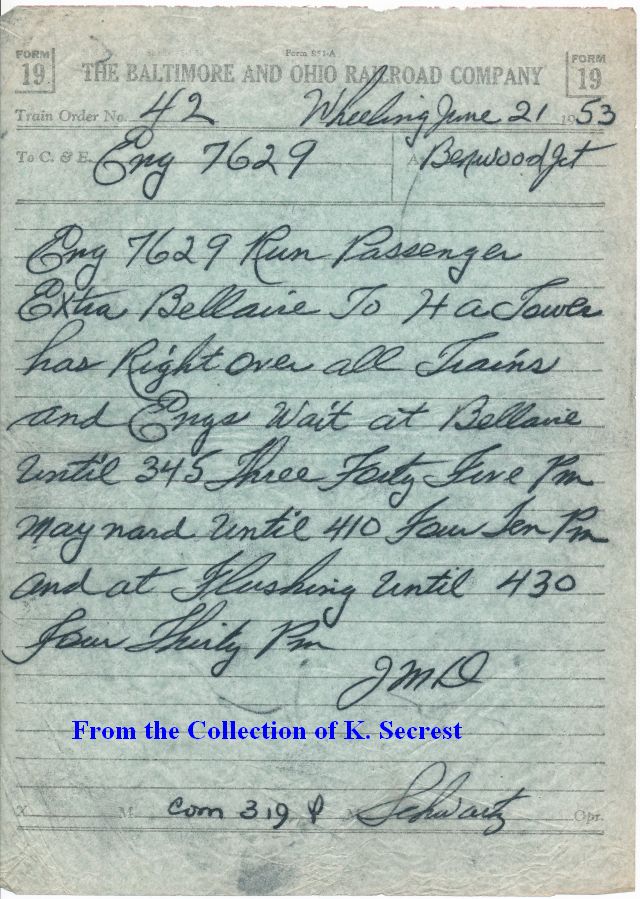 Form 851-A
FORM 19 THE BALTIMORE AND OHIO RAILROAD COMPANY FORM 19
Train Order No. 42 Wheeling June 21 1953
To C. & E. Eng 7629 At Benwood Jct
Eng 7629 Run Passenger
Extra Bellaire To H a Tower
has Right over all Trains
and Engs Wait at Bellaire
Until 345 Three Forty Five Pm
Maynard Until 410 Four Ten Pm
and at Flushing Until 430
Four Thirty Pm
JMD
From the Collection of K. Secrest
X. M. com 319 P M Schwartz Opr.